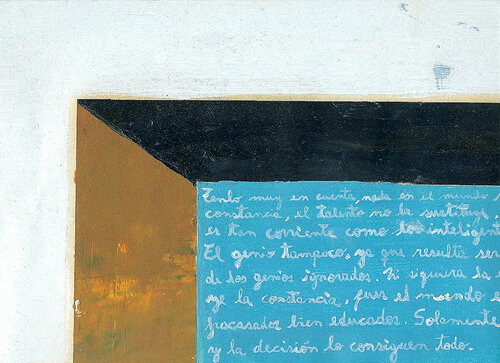 Tenlo muy en cuenta, nada en el mundo
constancia, el talento no la sustituye,
es tan corriente como los inteligent
El genio tampoco, ya que resulta ser
de los genios ignorados. Ni siquiera la
ye la constancia, pues el mundo
fracasados bien educados. Solamente
y la decisión lo consiguen todo.